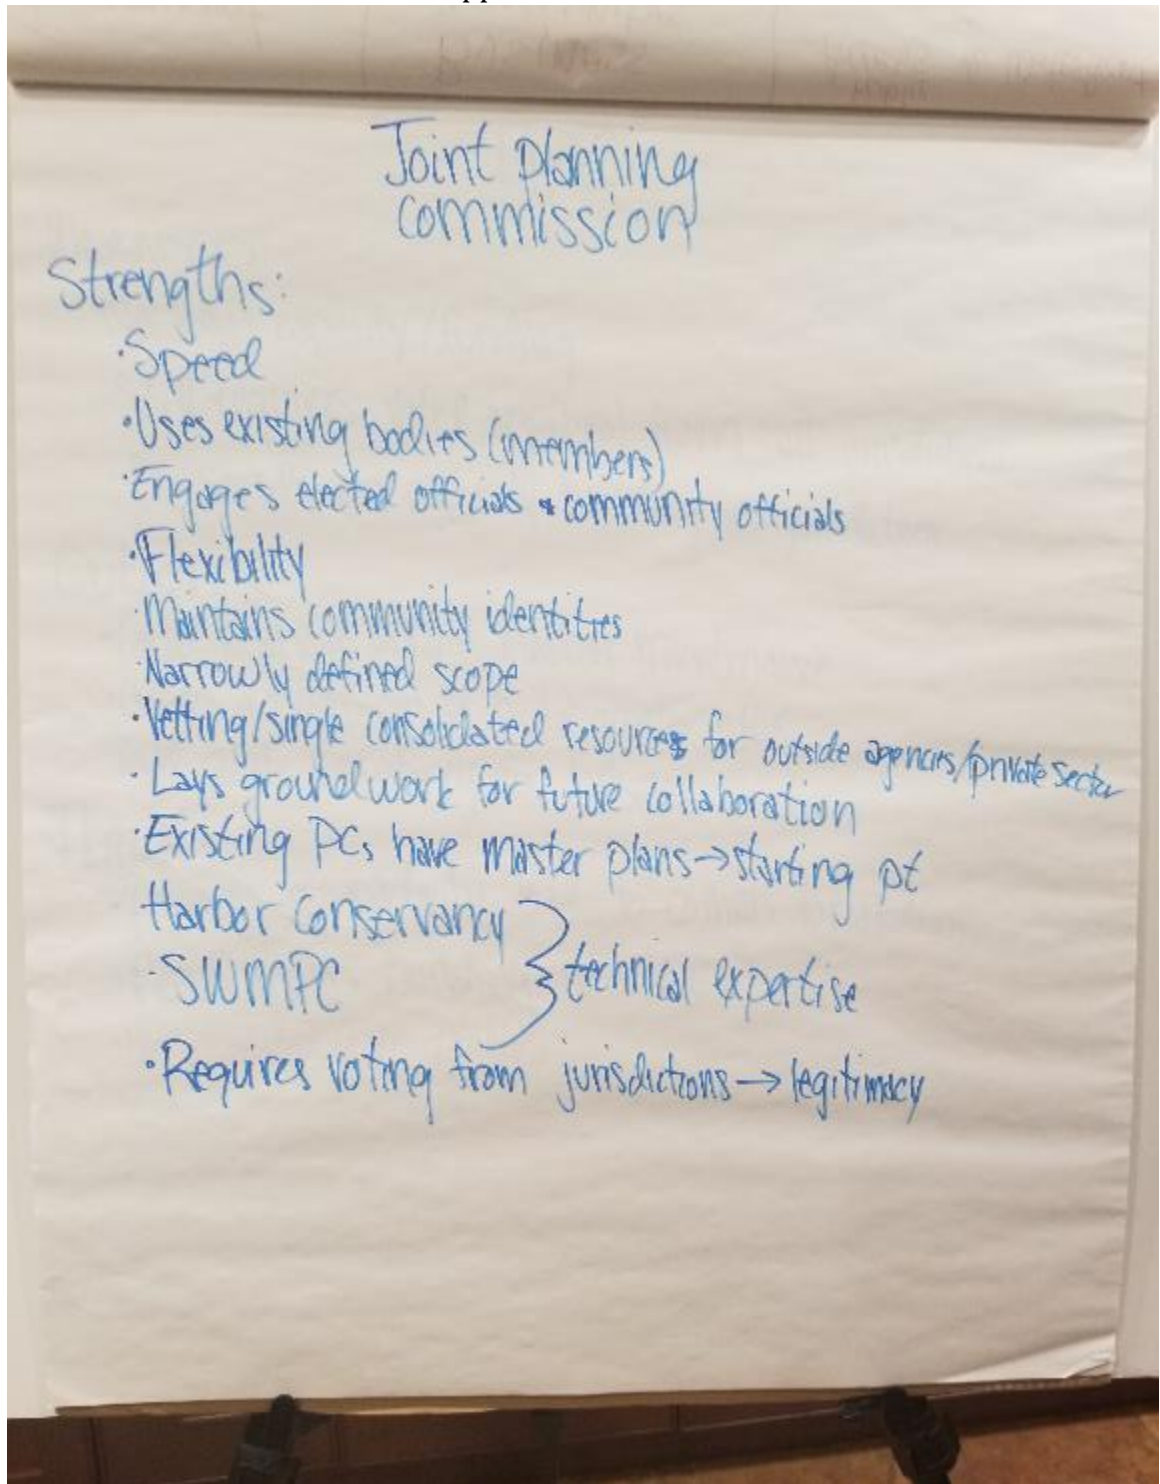 Joint Planning
Commission
Strengths:
·Speed
·Uses existing bodies (members)
·Engages elected officials & community officials
·Flexibility
·Maintains community identities
·Narrowly defined scope
·Vetting/single consolidated resources for outside agencies/private sector
·Lays groundwork for future collaboration
·Existing PCs have master plans→starting pt
Harbor Conservancy
·SWMPC } technical expertise
·Requires voting from jurisdictions→legitimacy